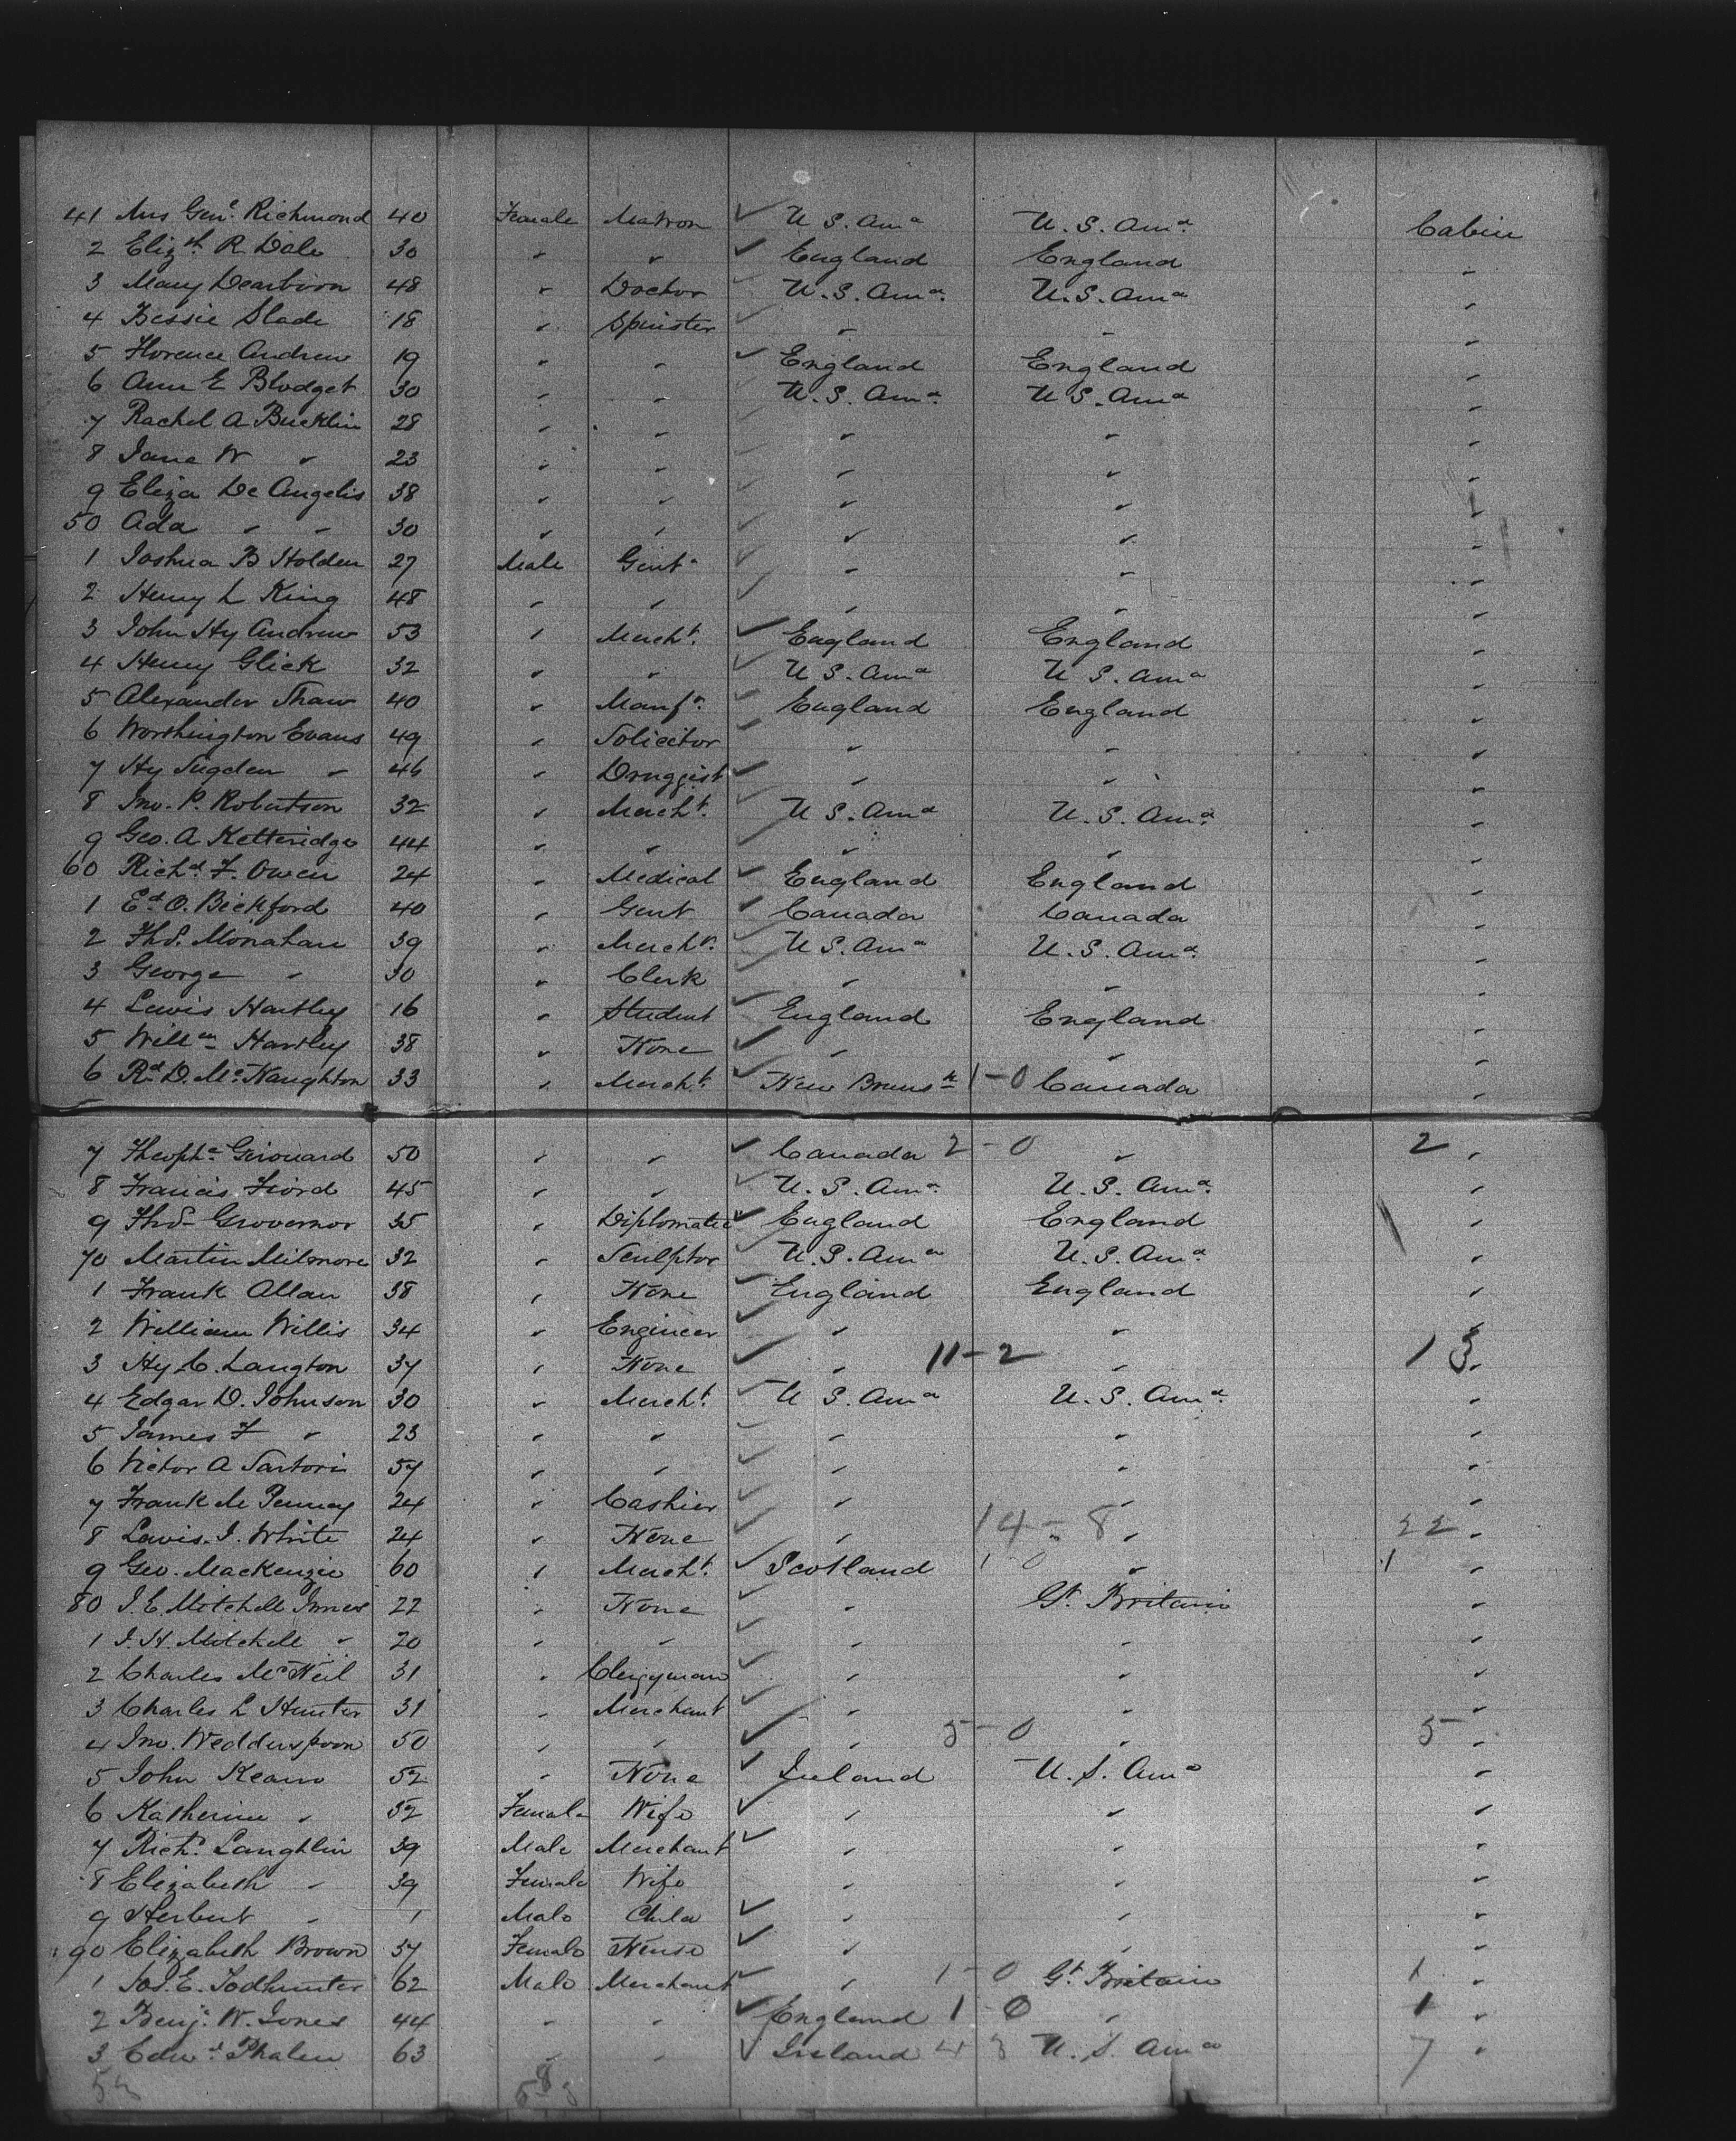 41 Mrs Geno. Richmond 40 Female Matron ✓ U S. Ama U. S. Ama. Cabin
2 Elizth. R Dale 30 " " ✓ England England "
3 Mary Dearborn 48 " Doctor ✓ U. S. Ama. U. S. Ama "
4 Bessie Slade 18 " Spinster ✓ " " "
5 Florence Andrew 19 " " ✓ England England "
6 Ann E Blodget 30 " " ✓ U. S. Ama. U S. Ama "
7 Rachel A Bucklin 28 " " ✓ " " "
8 Jane W " 23 " " ✓ " " "
9 Eliza De Angelis 38 " " ✓ " " "
50 Ada " " 30 " " ✓ " " "
1 Joshua B Holden 27 Male Gent. ✓ " " "
2 Henry L King 48 " " ✓ " " "
3 John Hy Andrew 53 " Mercht. ✓ England England "
4 Henry Glick 32 " " ✓ U S. Ama U S. Ama "
5 Alexander Shaw 40 " Manfr. ✓ England England "
6 Worthington Evans 49 " Solicitor ✓ " " "
7 Hy Sugden " 46 " Druggist ✓ " " "
8 Jno. P. Robertson 32 " Mercht. ✓ U S. Ama U. S. Ama. "
9 Geo. A Ketteridge 44 " " ✓ " " "
60 Richd. F. Owen 24 " Medical ✓ England England "
1 Ed. O. Bickford 40 " Gent ✓ Canada Canada "
2 Thos. Monahan 39 " Mercht. ✓ U S. Ama U. S. Ama. "
3 George " 30 " Clerk ✓ " " "
4 Lewis Hartley 16 " Student ✓ England England "
5 Willm Hartley 38 " None ✓ " " "
6 Rd. D. Mc. Naughton 33 " Mercht. ✓ New Brunsk 1-0 Canada "
7 Theophe. Girouard 50 " " ✓ Canada 2-0 " 2 "
8 Francis Fiord 45 " " ✓ U. S. Ama. U. S. Ama. "
9 Thos Grovernor 35 " Diplomatic ✓ England England "
70 Martin Milmore 32 " Sculptor ✓ U. S. Ama U. S. Ama. "
1 Frank Allan 38 " None ✓ England England "
2 William Willis 34 " Engineer ✓ " " "
3 Hy C. Langton 37 " None ✓ " 11-2 " 13 "
4 Edgar D. Johnson 30 " Mercht. ✓ U S. Ama U. S. Ama. "
5 James F " 23 " " ✓ " " "
6 Victor A Sartori 57 " " ✓ " " "
7 Frank M Penney 24 " Cashier ✓ " " "
8 Lewis. J. White 24 " None ✓ " 14-8 " 22 "
9 Geo. Mackenzie 60 " Mercht. ✓ Scotland 1 0 " 1 "
80 J. E. Mitchell Innes 22 " None ✓ " Gt. Britain "
1 J. H. Mitchell " 20 " " ✓ " " "
2 Charles McNeil 31 " Clergyman ✓ " " "
3 Charles L Hunter 31 " Merchant ✓ " " "
4 Jno. Wedderspoon 50 " " ✓ " 5-0 " 5 "
5 John Keane 52 " None ✓ Ireland U. S. Ama "
6 Katherine " 52 Female Wife ✓ " " "
7 Richd. Laughlin 39 Male Merchant ✓ " " "
8 Elizabeth " 39 Female Wife " " "
9 Herbert " 1 Male Child ✓ " " "
90 Elizabeth Brown 37 Female Nurse ✓ " " "
1 Jos. E. Todhunter 62 Male Merchant ✓ " 1-0 Gt. Britain 1 "
2 Benj. W. Jones 44 " " ✓ England 1-0 " 1 "
3 Edwd. Phalen 63 " " ✓ Ireland 4 3 U. S. Ama 7 "